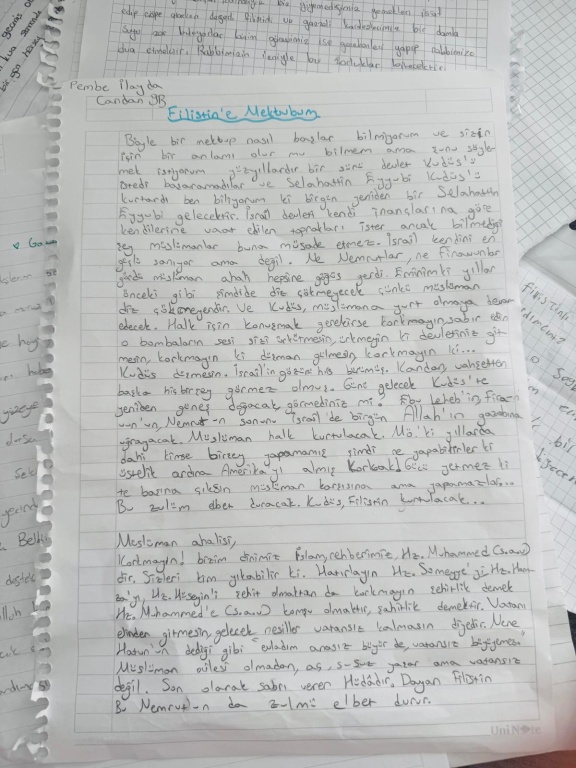 Pembe İlayda
Candan 9B
Filistin'e Mektubum
Böyle bir mektup nasıl başlar bilmiyorum ve sizin
için bir anlamı olur mu bilmem ama şunu söyle-
mek istiyorum yüzyıllardır bir sürü devlet Kudüs'ü
istedi başaramadılar ve Selahattin Eyyubi Kudüs'ü
kurtardı ben biliyorum ki birgün yeniden bir Selahattin
Eyyubi gelecektir. İsrail devleti kendi inançlarına göre
kendilerine vaat edilen toprakları ister ancak bilmediği
şey müslümanlar buna müsade etmez. İsrail kendini en
güçlü sanıyor ama değil. Ne Nemrutlar, ne Firavunlar
gördü müslüman ahali hepsine göğüs gerdi. Eminimki yıllar
önceki gibi şimdide diz çökmeyecek çünkü müslüman
diz çökmeyendir. Ve Kudüs, müslümana yurt olmaya devam
edecek. Halk için konuşmak gerekirse korkmayın, sabır edin
o bombaların sesi sizi ürkütmesin, ürkmeyin ki devletiniz git-
mesin, korkmayın ki düşman gülmesin, korkmayın ki...
Kudüs düşmesin. İsrail'in gözünü hırs bürümüş. Kandan, vahşetten
başka hiçbirşey görmez olmuş. Günü gelecek Kudüs'te
yeniden güneş doğacak görmediniz mi? Ebu Leheb'in Firav-
un'un, Nemrut'un sonunu İsrail'de birgün Allah'ın gazabına
uğrayacak. Müslüman halk kurtulacak. Mö.'ki yıllarda
dahi kimse birşey yapamamış şimdi ne yapabilirler ki
üstelik ardına Amerika'yı almış korkak! Gücü yetmez ki
tek başına çıksın müslüman karşısına ama yapamazlar...
Bu zulüm elbet duracak. Kudüs, Filistin kurtulacak...
Müslüman ahalisi,
Korkmayın! bizim dinimiz İslam, rehberimiz Hz. Muhammed (s.a.v)
dir. Sizleri kim yıkabilir ki. Hatırlayın Hz. Sümeyye'yi Hz. Ham-
za'yı, Hz. Hüseyin'i şehit olmaktan da korkmayın şehitlik demek
Hz. Muhammed'e (s.a.v) komşu olmaktır, şahitlik demektir. Vatanı
elinden gitmesin, gelecek nesiller vatansız kalmasın diyedir. Nene
Hatun'un dediği gibi "evladım anasız büyür de, vatansız büyüyemez."
Müslüman ailesi olmadan, aç, susuz yaşar ama vatansız
değil. Son olarak sabrı veren Hüdadır. Dayan Filistin
Bu Nemrut'un da zulmü elbet durur.
UniNote